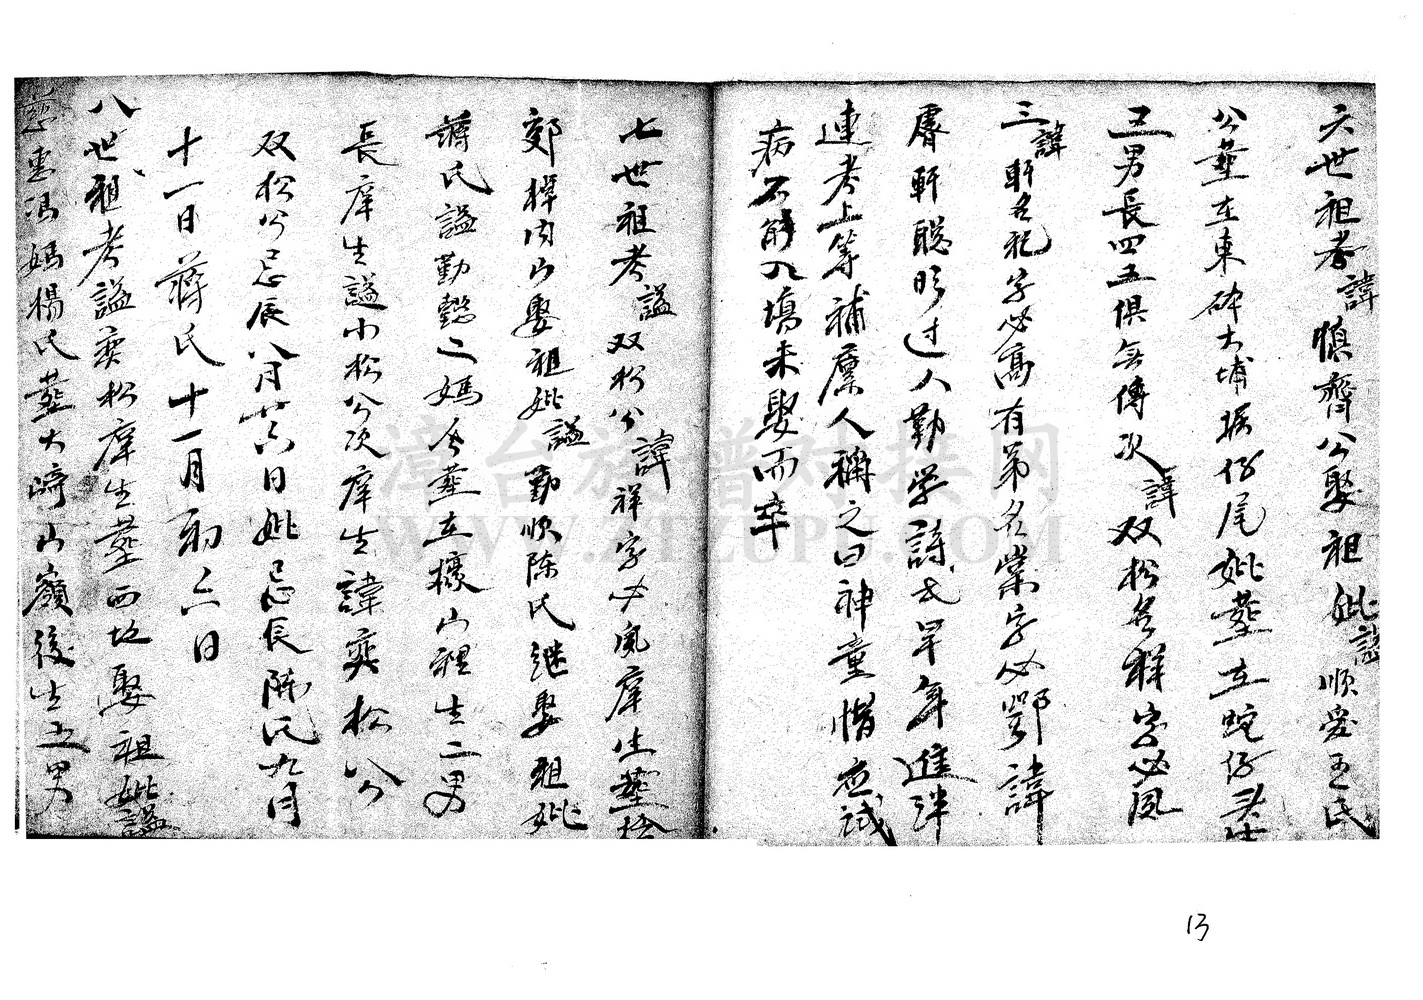 六世祖考諱慎齋公娶祖妣謚順愛王氏
公葬在東硿大埔堀仔尾妣葬在蛇仔头生
五男長四五俱無傳次諱双松名祥字必風
三諱軒名祀字必高有第名棠字必鄂諱
膚軒聪明过人勤学詩弌早年進泮
連考上等補廩人稱之曰神童惜应試
病不能入塲未娶而卒
七世祖考謚双松公諱祥字必風庠生葬於
郊樟内山娶祖妣謚勤順陈氏继娶祖妣
蒋氏謚勤懿二媽合葬在樣山裡生二男
長庠生謚小松公次庠生諱奕松公
双松公忌辰八月廿六日妣忌辰陈氏九月
十一日蒋氏十一月初六日
八世祖考謚奕松庠生葬西坂娶祖妣謚
慈惠馮媽楊氏葬大崎山嶺後生五男
漳台族谱对接网
WWW.ZTZUPU.COM
13